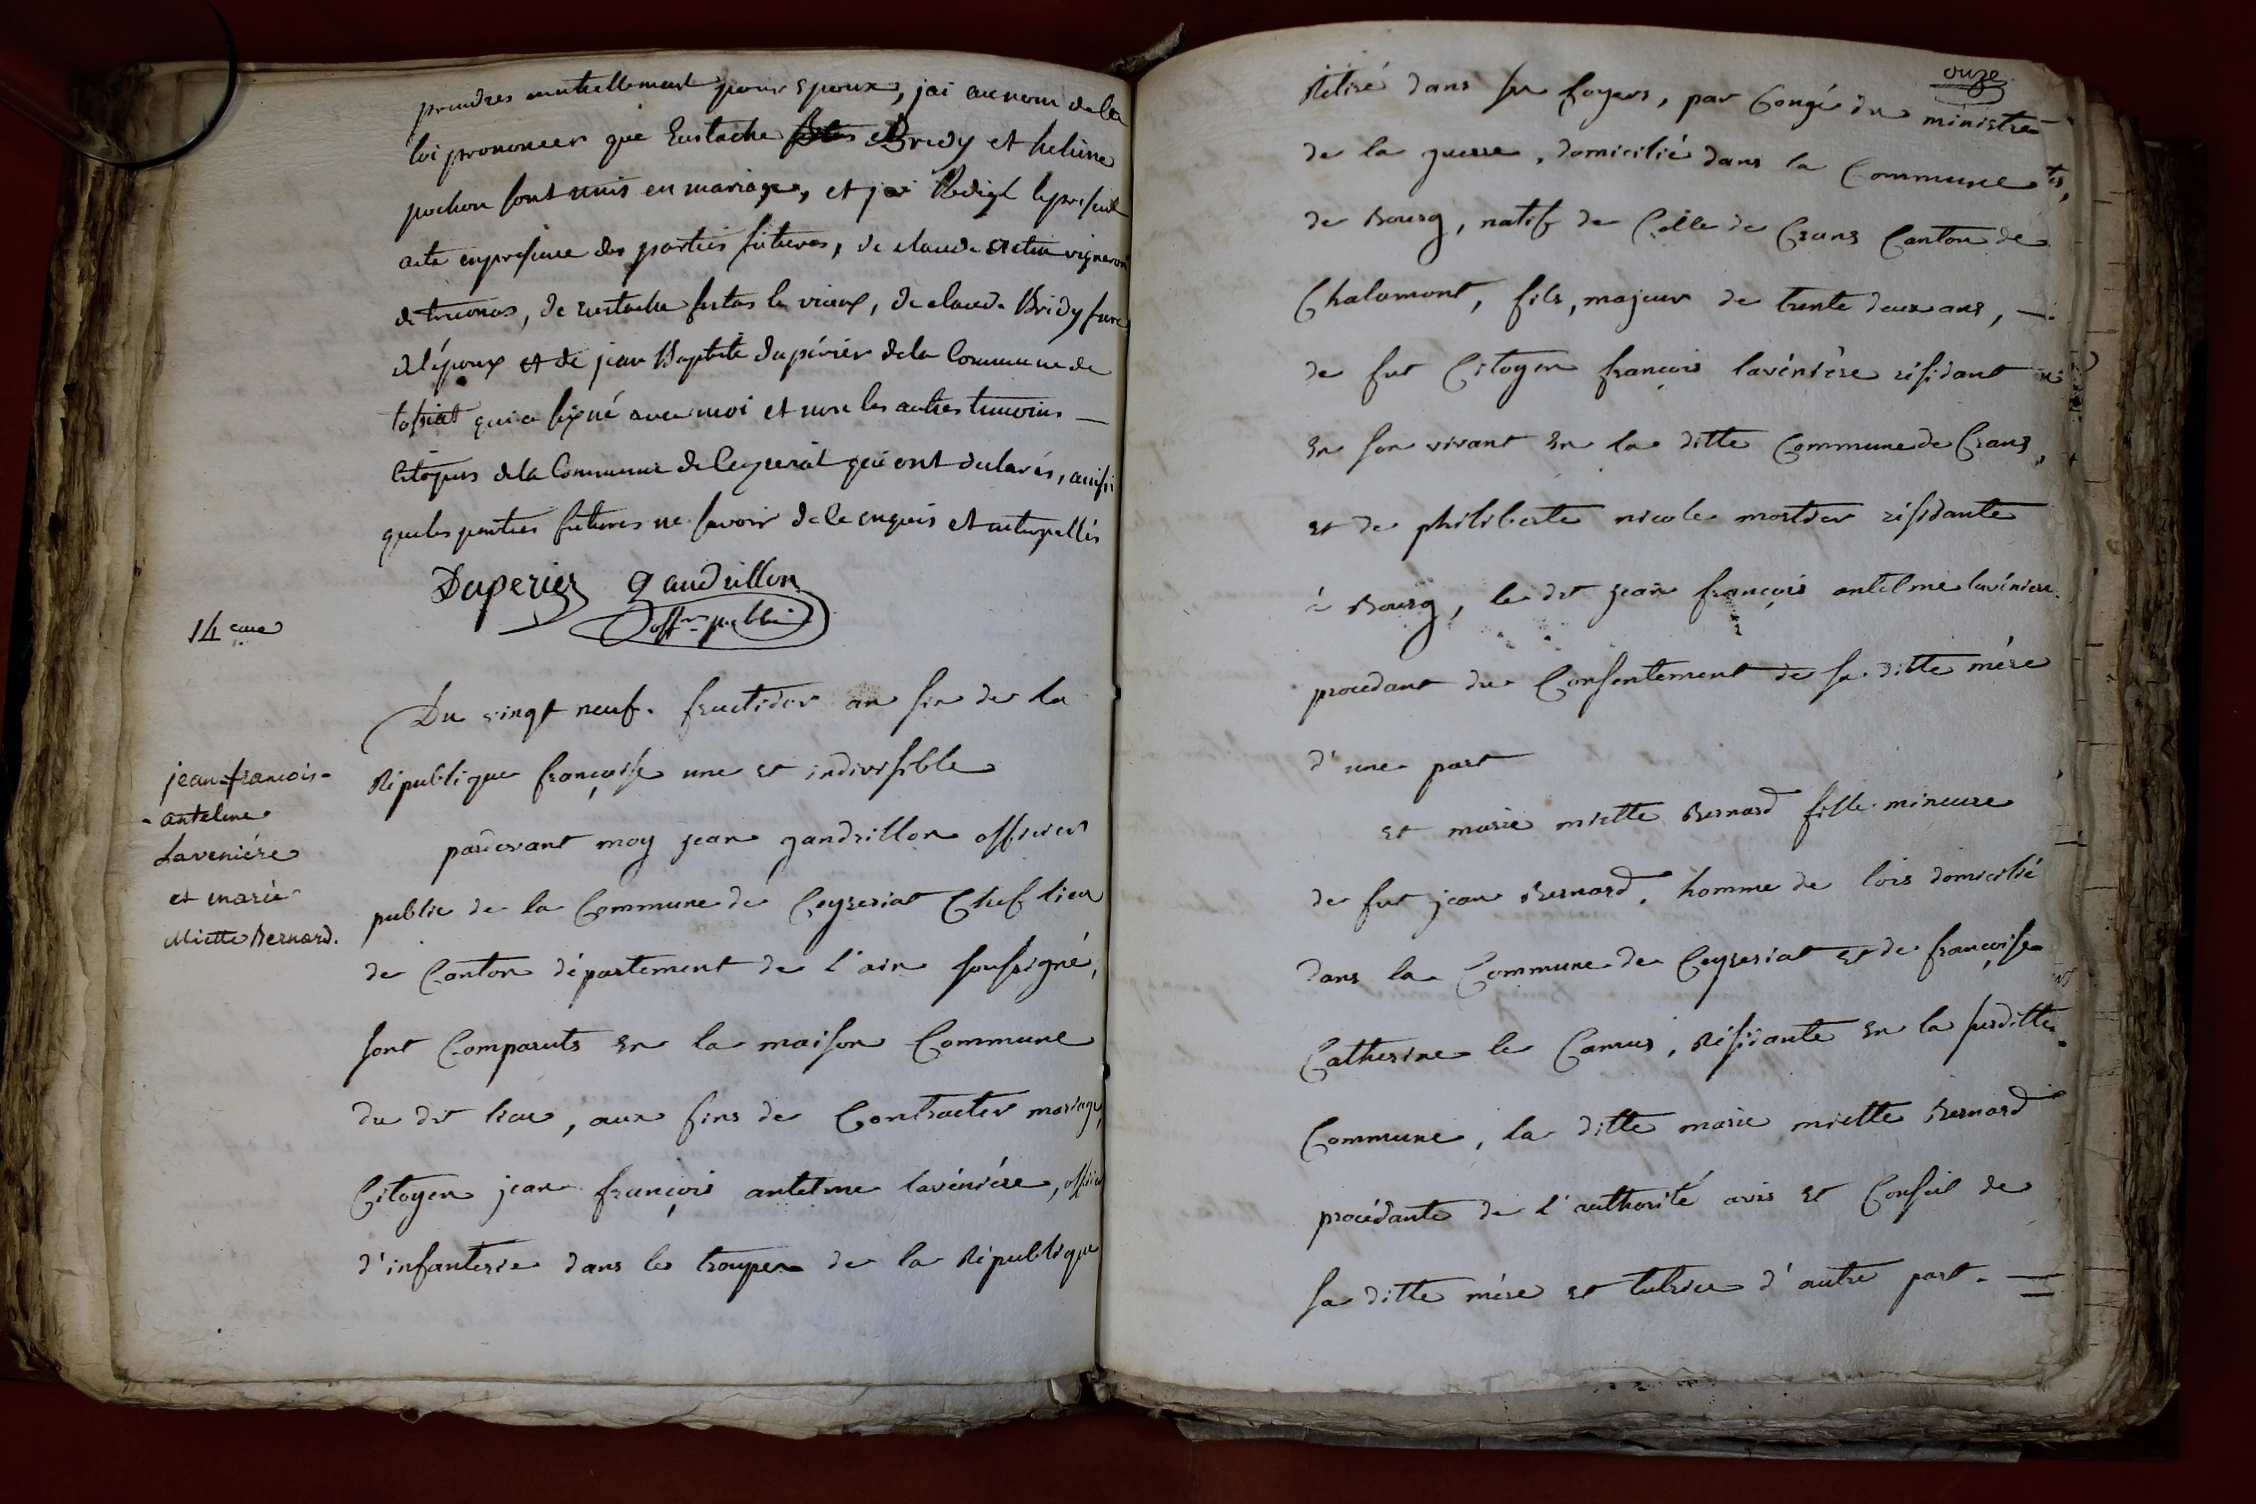 prendres mutuellement pour epoux, jai au nom de la
loi prononcer que Eustache Bridy et helène
pochon sont unis en mariage, et jai Redigé le present
acte en presence des parties futures, de claude vigneron
de treconas, de eustache festas le vieux, de claude Bridy frere
de lépoux et de jean Baptiste dupérier de la Commune de
tossiat qui a signé avec moi et non les autres temoins —
Citoyens de la Commune de Ceyzeriat qui ont declarés, ainsi
que les parties futures ne savoir de le enquis et interpellés
Duperier gaudrillon
offier public
14eme
Du vingt neuf fructidor an six de la
République françoise une et indivisible
jean=francois=
antelme
Laveniére
et marie
Miette Bernard.
pardevant moy jean gandrillon officier
public de la Commune de Ceyzeriat Chef lieu
de Canton département de l'ain soussigné,
sont Comparuts en la maison Commune
du dit lieu, aux fins de Contracter mariage,
Citoyen jean françois antelme lavéniére, officier
d'infanterie dans les troupes de la République
onze
Retiré dans ses foyers, par Congé du ministre
de la guerre, domicilié dans la Commune
de Bourg, natif de Celle de Crans Canton de
Chalamont, fils, majeur de trente deux ans, —
de fut Citoyen françois lavéniére résidant
en son vivant en la ditte Commune de Crans,
et de philiberte nicole mortier résidante
à Bourg, le dit jean françois antelme lavéniere
procedant du Consentement de sa ditte mére
d'une part
et marie miette Bernard fille mineure
de fut jean Bernard, homme de lois domicilié
dans la Commune de Ceyzeriat et de françoise
Catherine le Camus, Résidante en la susditte
Commune, la ditte marie miette Bernard
procédante de l'authorité avis et Conseil de
sa ditte mére et tutrice d'autre part. —